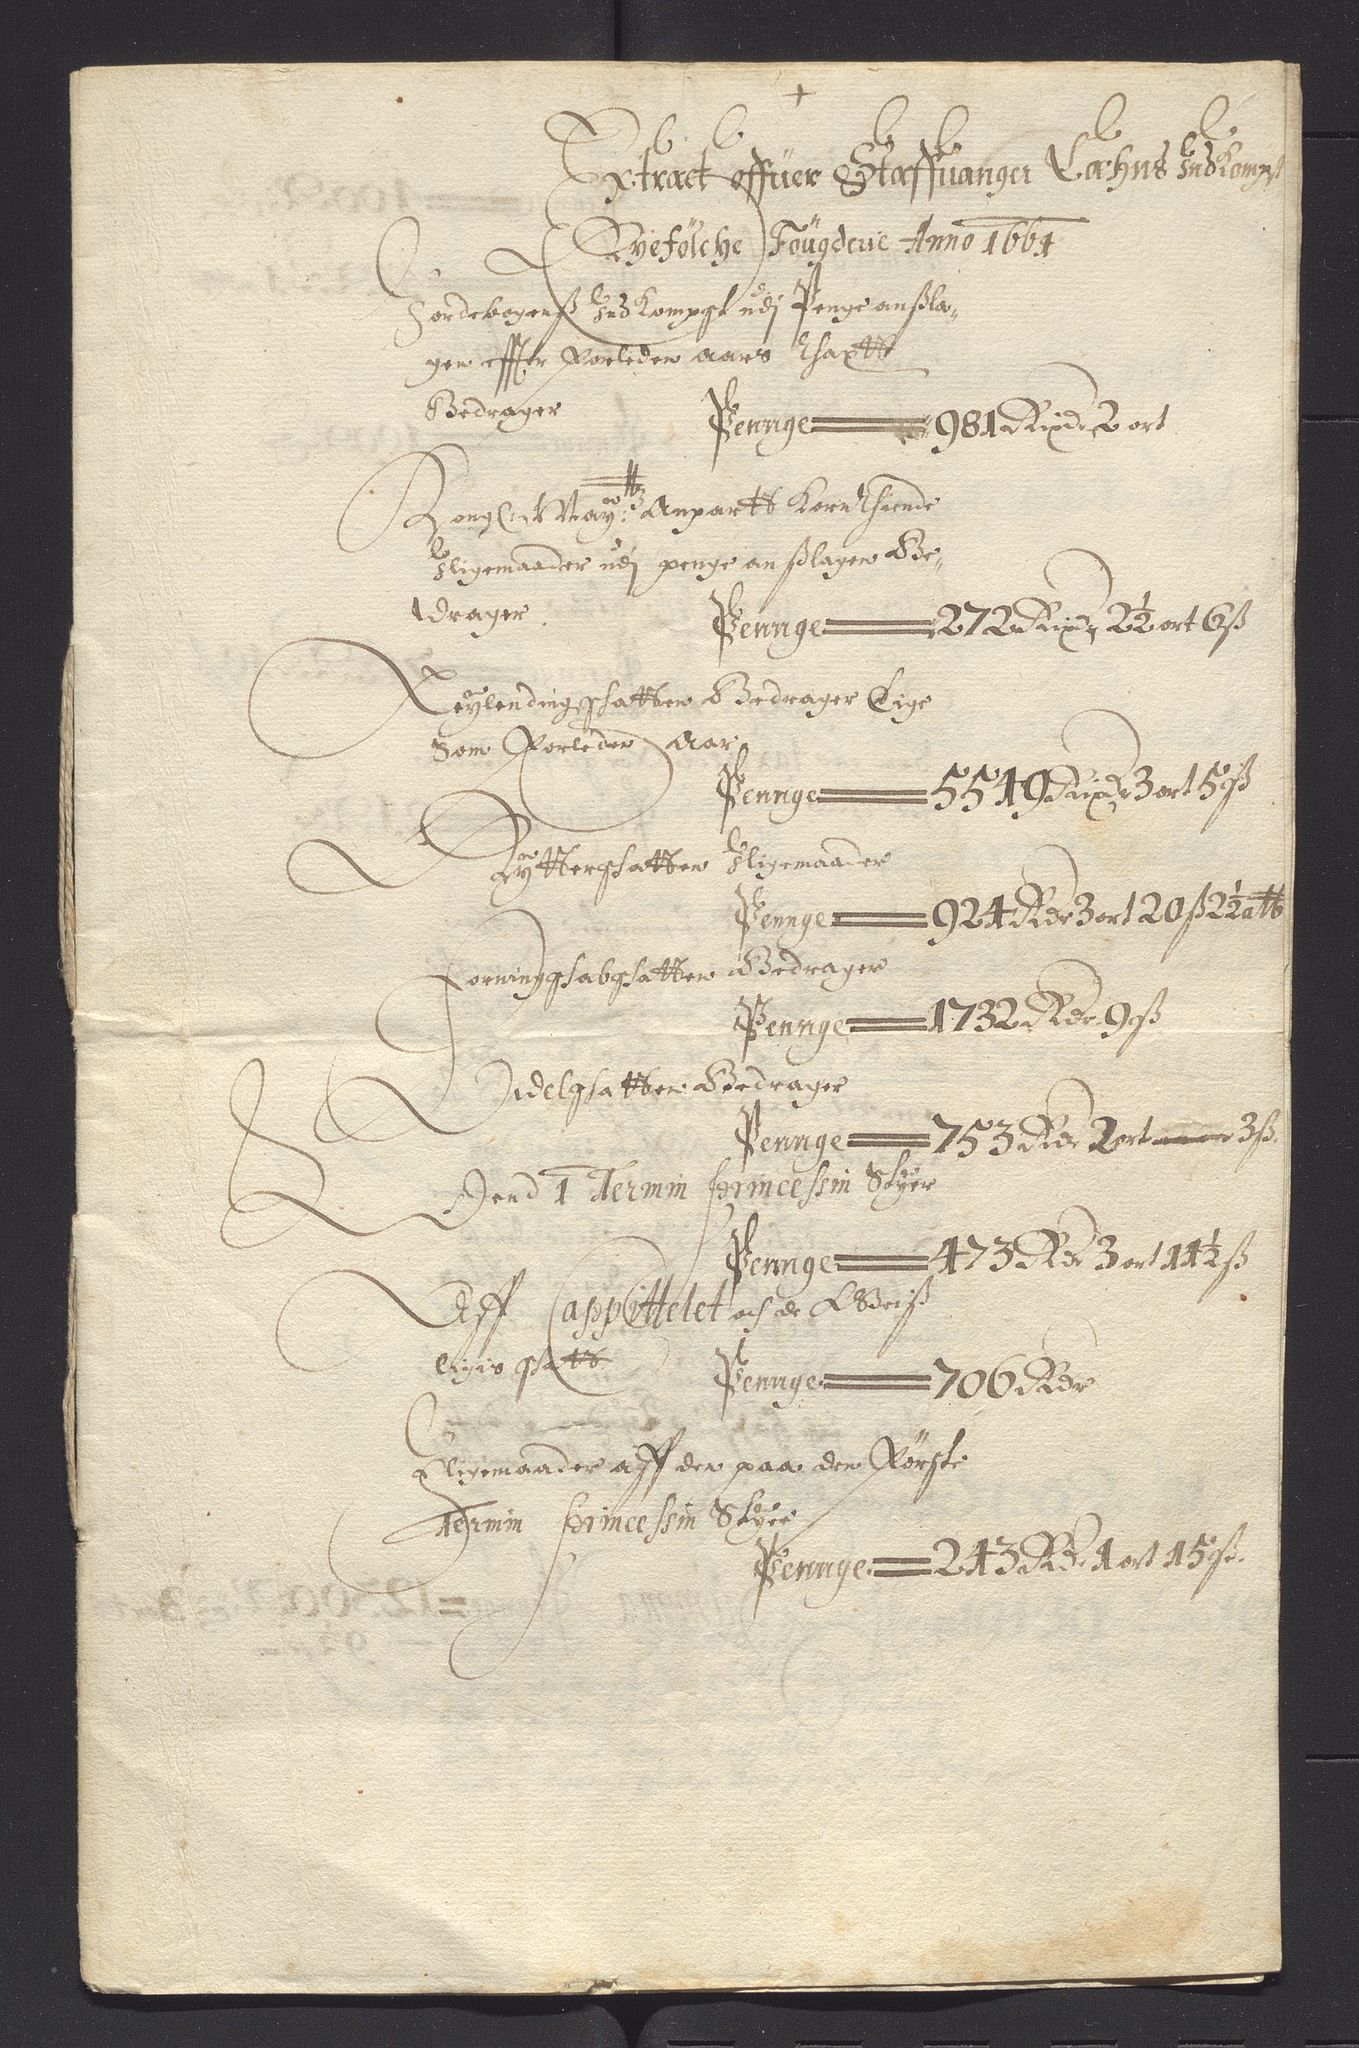 Extract offuer Staffuanger Læhns Indkompst
Ryefölche Föugderie Anno 1661
Jordebogenß Indkompst udj Penge anßla-
gen effter Forleden aars Thaxtt
Bedrager Pennge 981 Rixdr 2 ort
Kong: May:ttz Anpartt Korn Thiende
Iligemaader udj penge anßlagen Be-
drager Pennge 272 Rixdr 2½ ort 6ß
Leylendingschatten Bedrager Lige
Som Forleden Aar
Pennge 5549 Rixdr 3 ort 5ß
Rytterschatten Iligemaader
Pennge 924 Rdr 3 ort 20ß 2½ alb
Forningschabschatten Bedrager
Pennge 1732 Rdr 9ß
Odelschatten Bedrager
Pennge 753 Rdr 2 ort 3ß
Dend 1 Termin Princessin Styer
Pennge 473 Rdr 3 ort 11½ ß
Aff Cappittelet och de Geist
ligis schatt Pennge 706 Rdr
Iligemaader aff dem paa den Förste
Termin Princessin Styer
Pennge 243 Rdr 1 ort 15ß